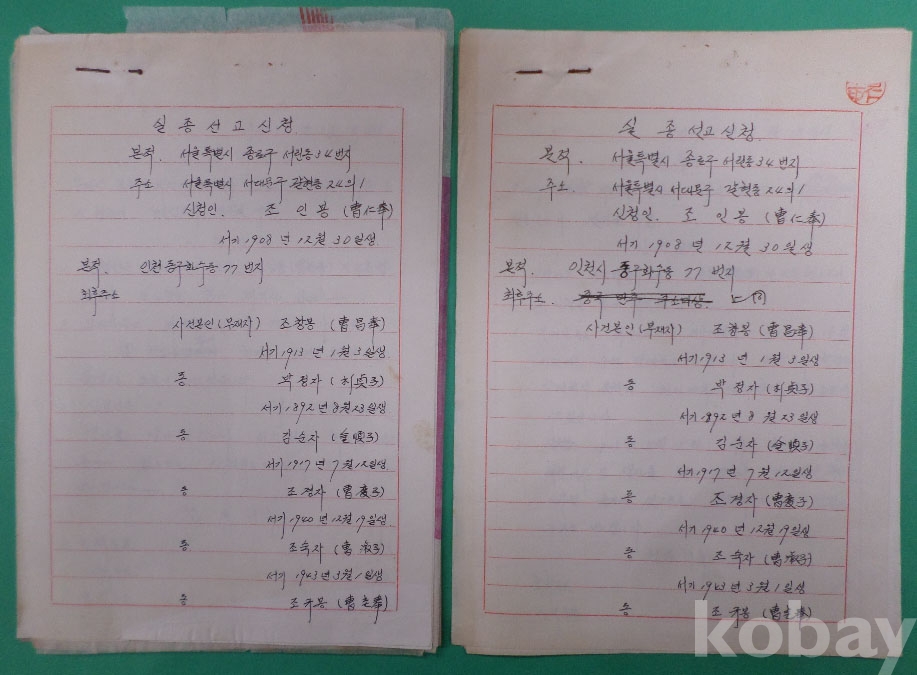 실종선고신청
본적. 서울특별시 종로구 서린동 34번지
주소 서울특별시 서대문구 갈현동 24의1
신청인. 조인봉 (曺仁奉)
서기 1908년 12월 30일생
본적. 인천 동구화수동 77번지
최후주소
사건본인(부재자) 조창봉 (曺昌奉)
서기 1913년 1월 3일생
동 박정자 (朴貞子)
서기 1892년 8월 23일생
동 김순자 (金順子)
서기 1917년 7월 12일생
동 조경자 (曺慶子)
서기 1940년 12월 19일생
동 조숙자 (曺淑子)
서기 1943년 3월 1일생
동
실종선고신청.
본적. 서울특별시 종로구 서린동 34번지
주소. 서울특별시 서대문구 갈현동 24의1
신청인. 조인봉 (曺仁奉)
서기 1908년 12월 30일생
본적. 인천시 동구화수동 77번지
최후주소.
사건본인(부재자) 조창봉 (曺昌奉)
서기 1913년 1월 3일생
동 박정자 (朴貞子)
서기 1892년 8월 23일생
동 김순자 (金順子)
서기 1917년 7월 12일생
동 조경자 (曺慶子)
서기 1940년 12월 19일생
동 조숙자 (曺淑子)
서기 1943년 3월 1일생
동
kobay